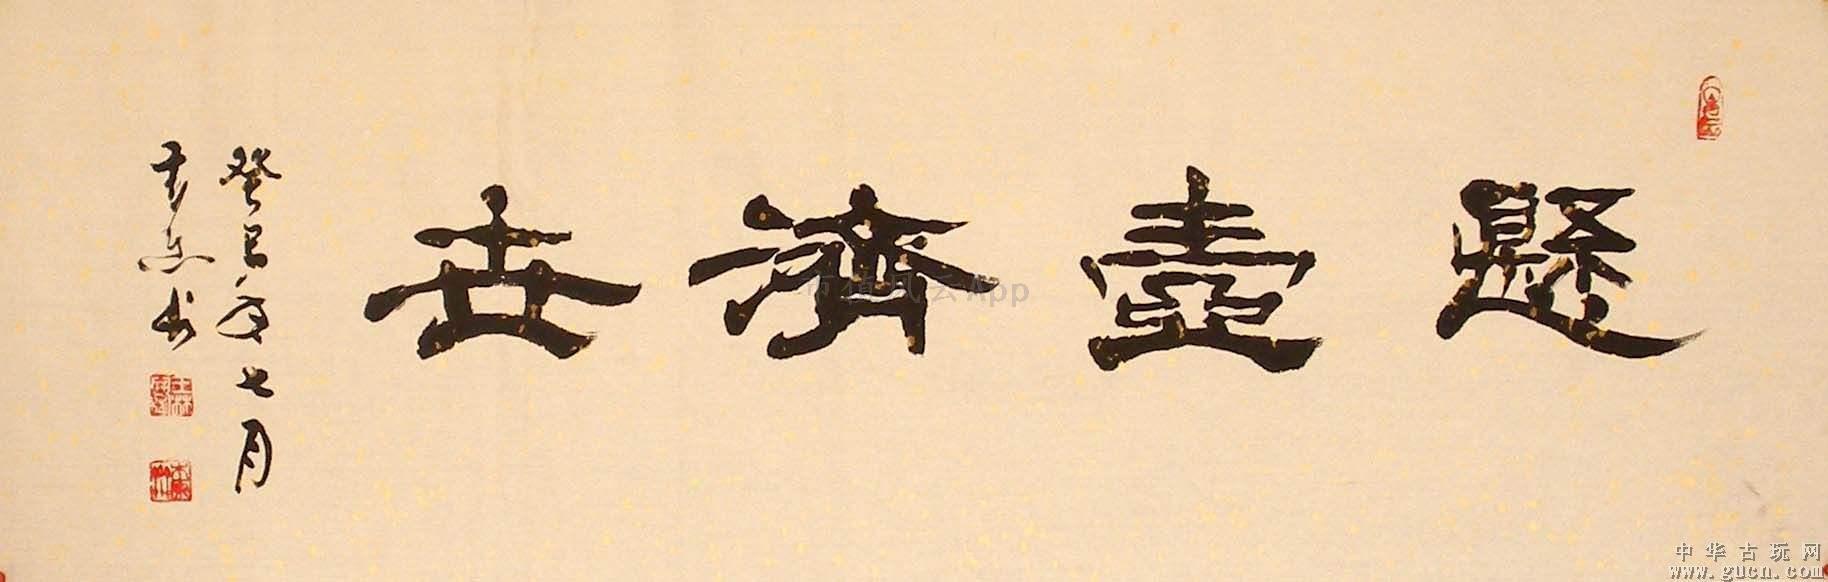 懸壺濟世
癸巳年七月
书
中华古玩网
www.gucn.com